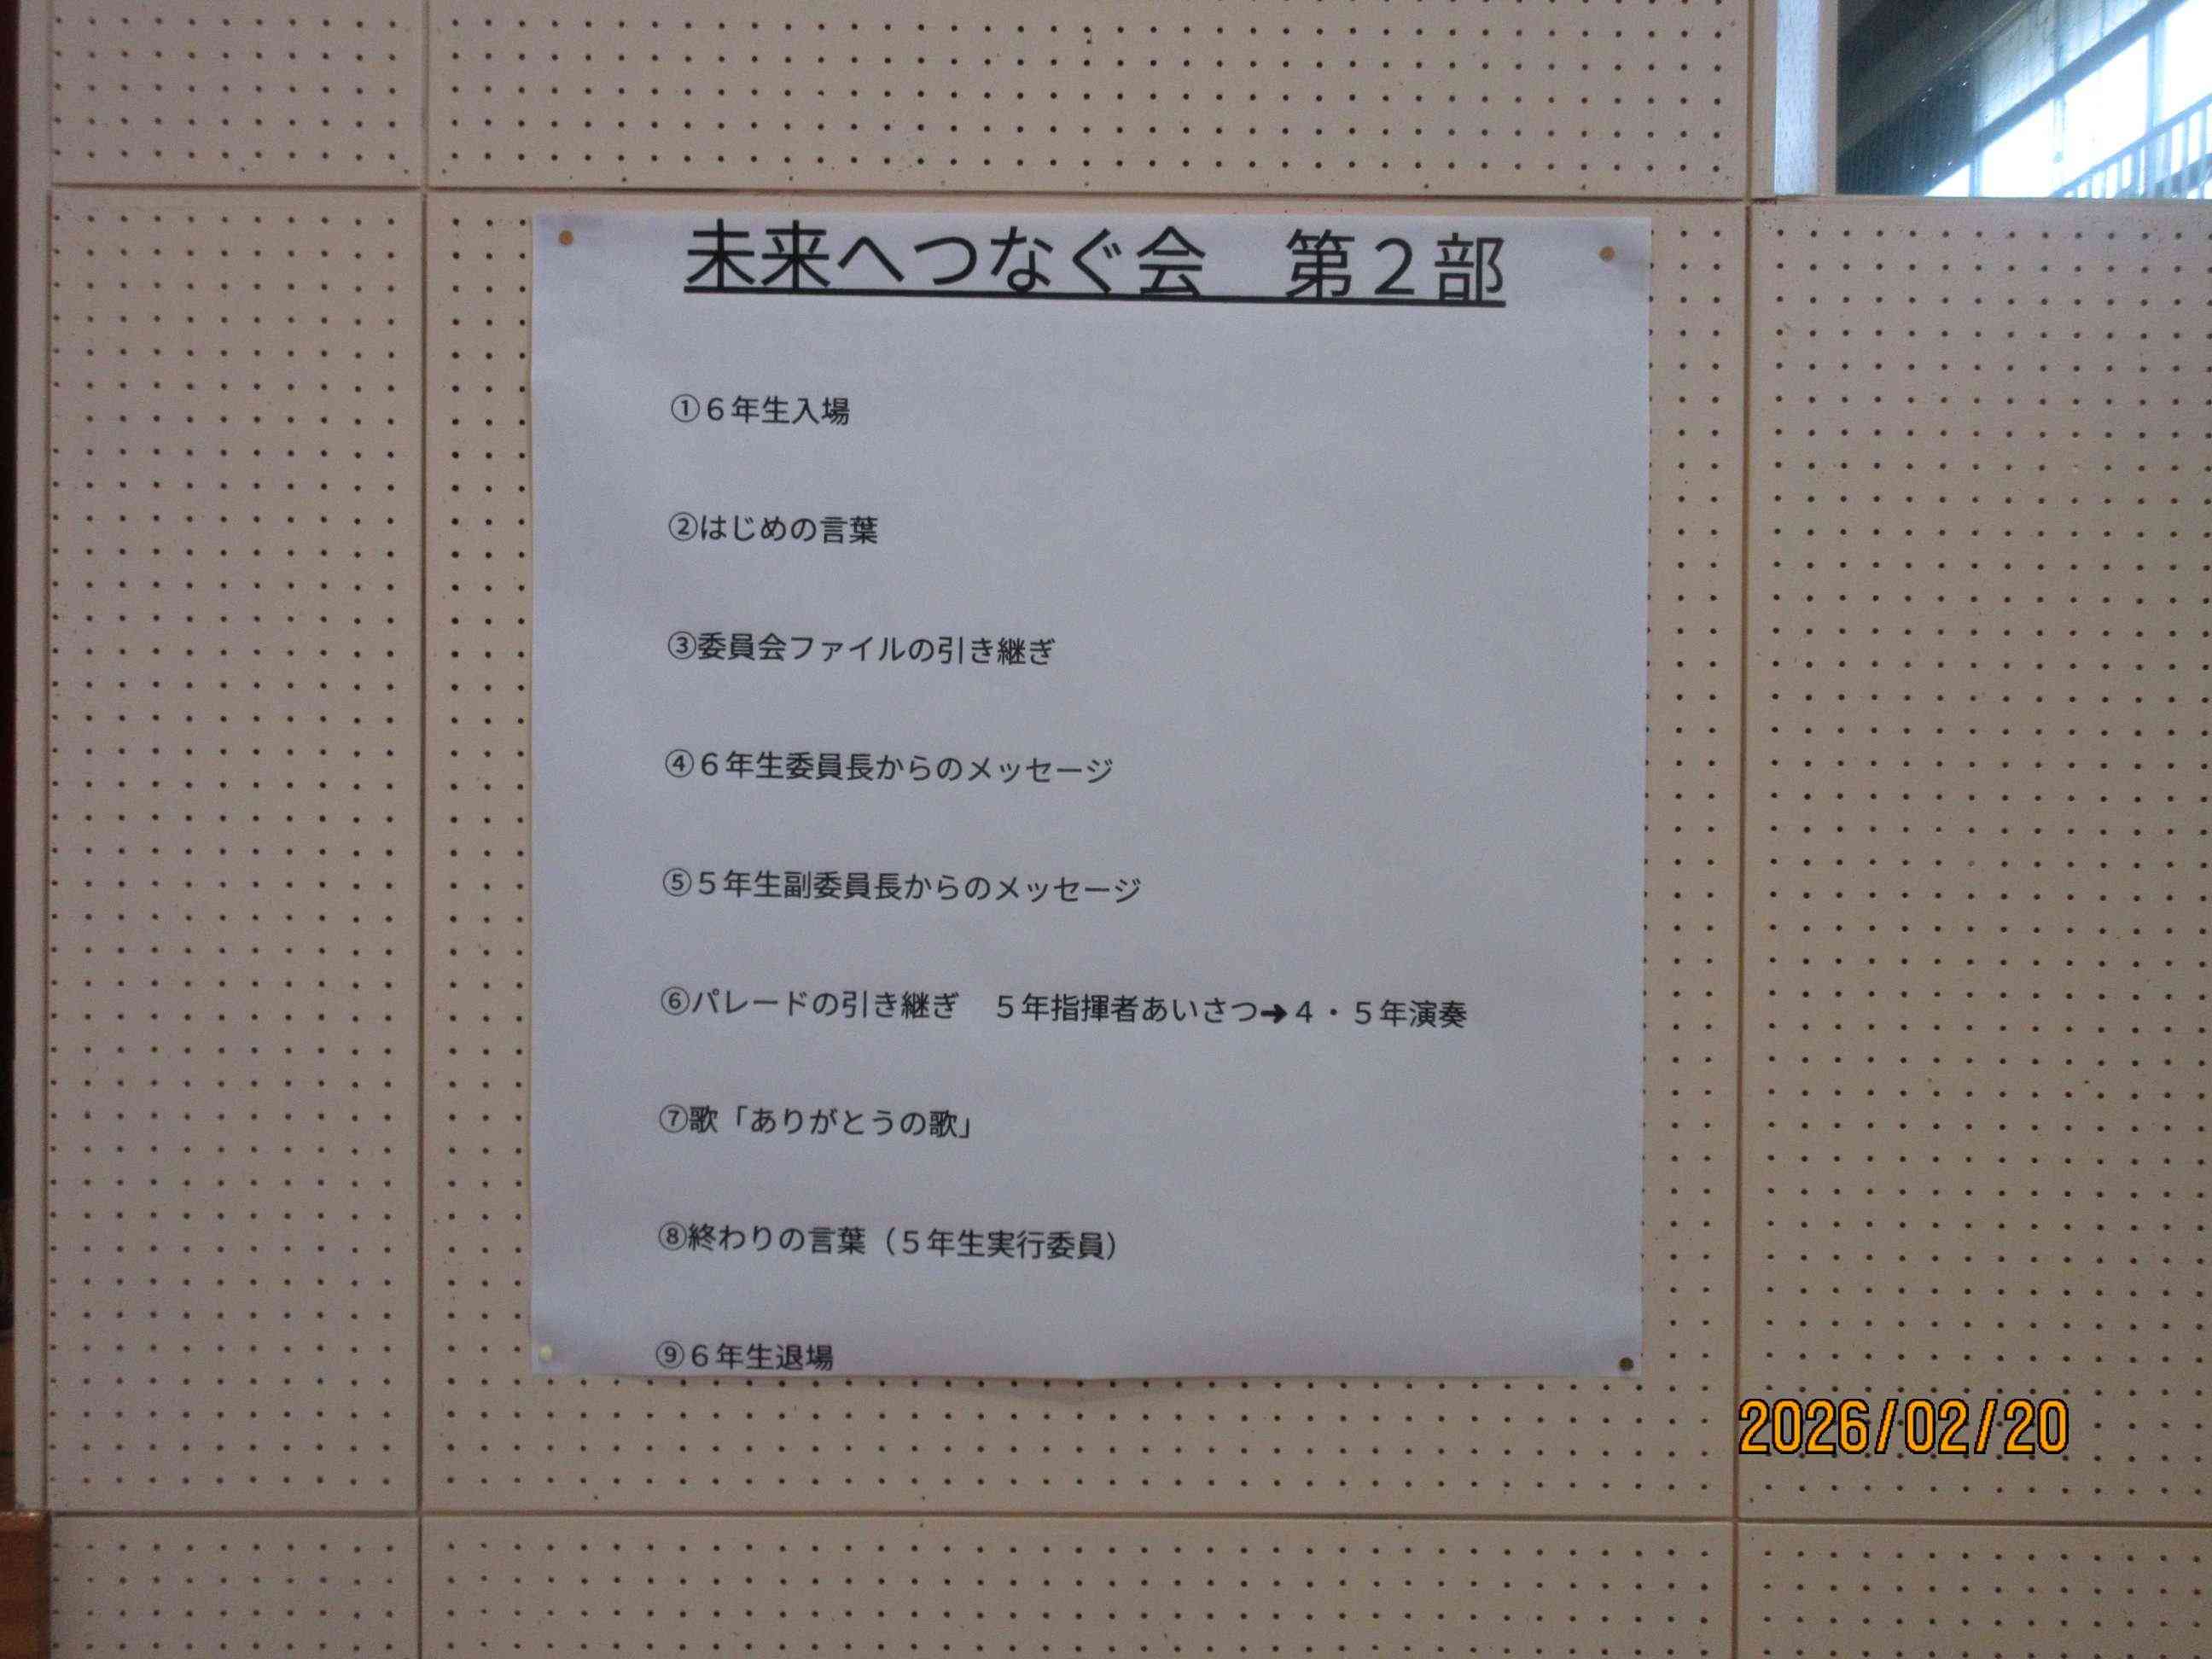 未来へつなぐ会　第２部
①６年生入場
②はじめの言葉
③委員会ファイルの引き継ぎ
④６年生委員長からのメッセージ
⑤５年生副委員長からのメッセージ
⑥パレードの引き継ぎ　５年指揮者あいさつ➜４・５年演奏
⑦歌「ありがとうの歌」
⑧終わりの言葉（５年生実行委員）
⑨６年生退場
2026/02/20